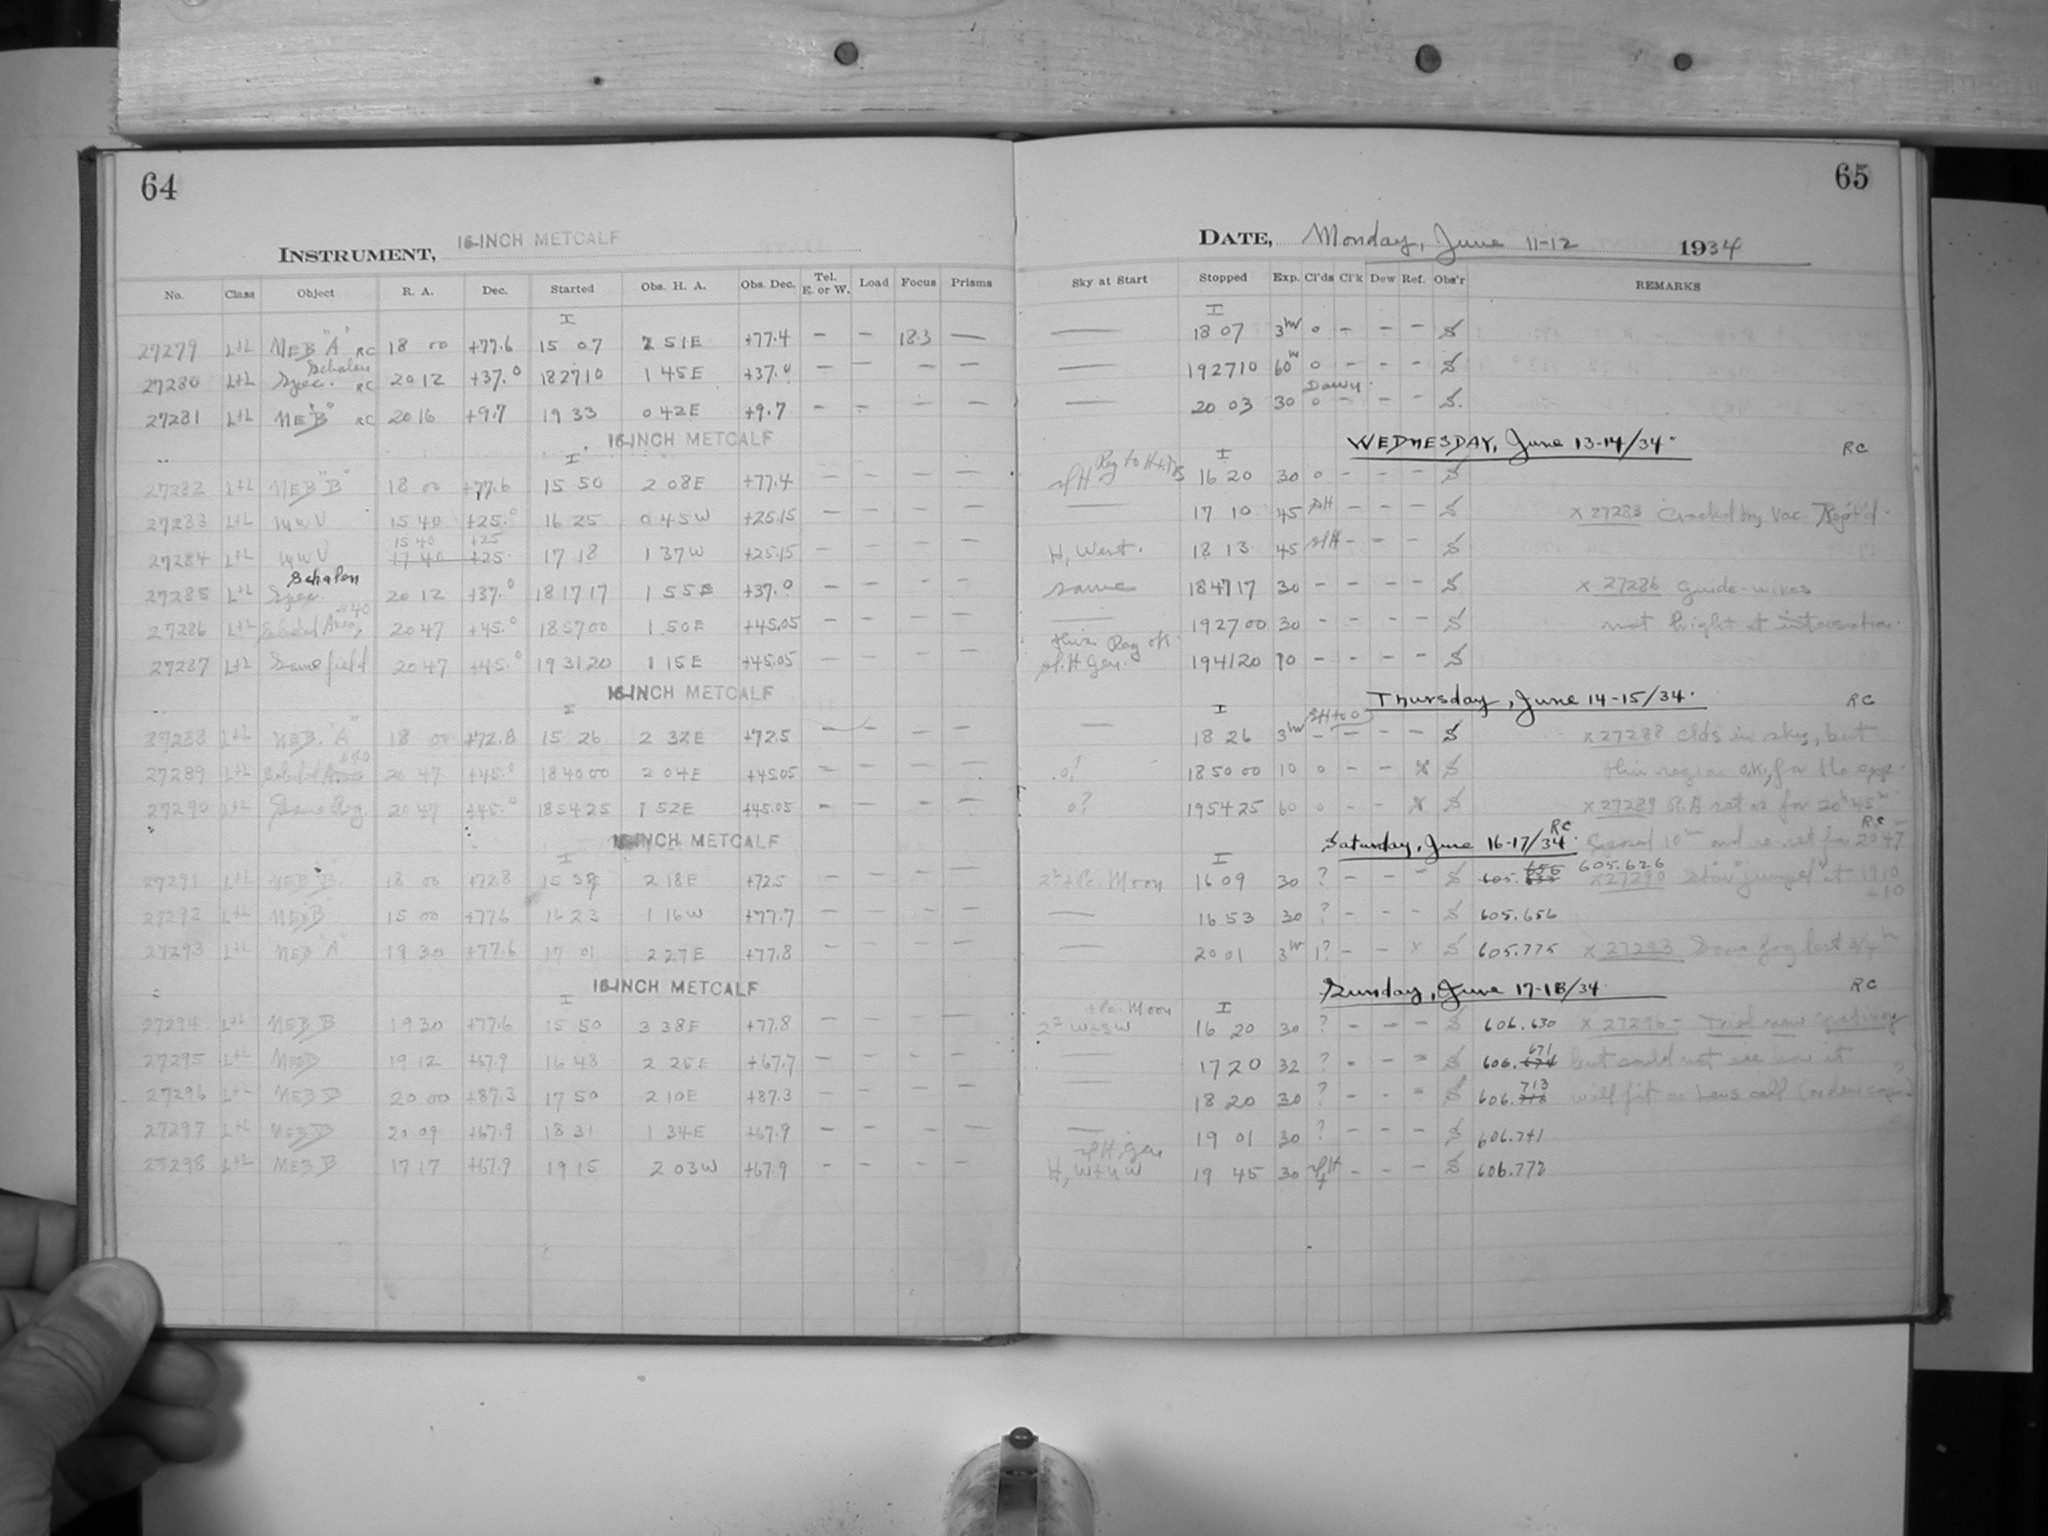 64
INSTRUMENT, 16-INCH METCALF
No. Class Object R. A. Dec. Started Obs. H. A. Obs. Dec. Tel. E. or W. Load Focus Prisms
I
27279 L+L NEB "A" RC 18 00 +77.6 15 07 2 51E +77.4 — — 18.3 —
Schalen
27280 L+L Spec. RC 20 12 +37.0 18 27 10 1 45E +37.0 — — — —
27281 L+L NEB "B" RC 20 16 +9.7 19 33 0 42E +9.7 — — — —
16-INCH METCALF
I
27282 L+L NEB "B" 18 00 +77.6 15 50 2 08E +77.4 — — — —
27283 L+L MWV 15 40 +25.0 16 25 0 45W +25.15 — — — —
15 40 +25
27284 L+L MWV 17 40 +25. 17 18 1 37W +25.15 — — — —
Schalen
27285 L+L Spec. 20 12 +37.0 18 17 17 1 55E +37.0 — — — —
27286 L+L Selected Area, #40 20 47 +45.0 18 57 00 1 50E +45.05 — — — —
27287 L+L Same field 20 47 +45.0 19 31 20 1 15E +45.05 — — — —
16-INCH METCALF
I
27288 L+L NEB. "A" 18 00 +72.8 15 26 2 32E +72.5 — — — —
27289 L+L Selected Area #40 20 47 +45.0 18 40 00 2 04E +45.05 — — — —
27290 L+L Same Reg. 20 47 +45.0 18 54 25 1 52E +45.05 — — — —
16-INCH METCALF
I
27291 L+L NEB "B" 18 00 +72.8 15 39 2 18E +72.5 — — — —
27292 L+L NEB 15 00 +77.6 16 23 1 16W +77.7 — — — —
27293 L+L NEB "A" 19 30 +77.6 17 01 2 27E +77.8 — — — —
16-INCH METCALF
I
27294 L+L NEB B 19 30 +77.6 15 50 3 38E +77.8 — — — —
27295 L+L NEB 19 12 +67.9 16 48 2 25E +67.7 — — — —
27296 L+L NEB B 20 00 +87.3 17 50 2 10E +87.3 — — — —
27297 L+L NEB B 20 09 +67.9 18 31 1 34E +67.9 — — — —
27298 L+L NEB B 17 17 +67.9 19 15 2 03W +67.9 — — — —
65
DATE, Monday, June 11-12 1934
Sky at Start Stopped Exp. Cl'ds Cl'k Dew Ref. Obs'r REMARKS
I
— 18 07 3hr 0 — — — S
— 19 27 10 60m 0 — — — S
Dawn
— 20 03 30 0 — — — S.
WEDNESDAY, June 13-14/34. RC
I
slH 16 20 30 0 — — — S
— 17 10 45 slH — — — S x 27283 Cracked by Vac. Rept'd.
H, West. 18 13 45 slH — — — S
same 18 47 17 30 — — — — S x 27286 guide-wires
— 19 27 00 30 — — — — S not bright at intersection.
this Reg ok
sl. H gen. 19 41 20 10 — — — — S
Thursday, June 14-15/34. RC
I slH to 0
— 18 26 3hr — — — — S x 27288 Clds in sky, but
0? 18 50 00 10 0 — — x S this region O.K., for the exp.
0? 19 54 25 60 0 — — x S x 27289 R.A set as for 20h45m
Saturday, June 16-17/34. RC RC
Exposed 10m and re-set for 20 47
I
Moon 16 09 30 ? — — — S 605. 605.626 x 27290 Star "jumped" at 19 10
— 16 53 30 ? — — — S 605.656
— 20 01 3hr 1? — — x S 605.775 x 27293 Some fog last 3/4 hr
Sunday, June 17-18/34. RC
Moon I
W+SW 16 20 30 ? — — — S 606.630 x 27296 – Tried new
— 17 20 32 ? — — — S 606.671 but could not see how it
— 18 20 30 ? — — — S 606.713 will fit on Lens cell
— 19 01 30 ? — — — S 606.741
slH, gen
H, W+NW 19 45 30 slH — — — S 606.772